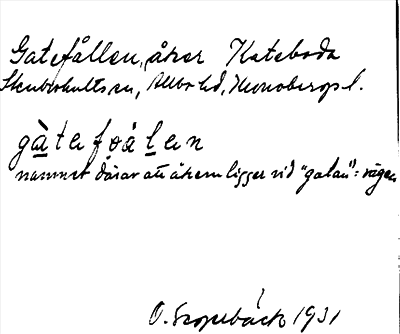 Gatefållen, åker Kateboda
Stenbrohults sn, Allbo hd, Kronobergs l.
gàtefoålen
namnet därav att åkern ligger vid "gatan": vägen
O. 1931